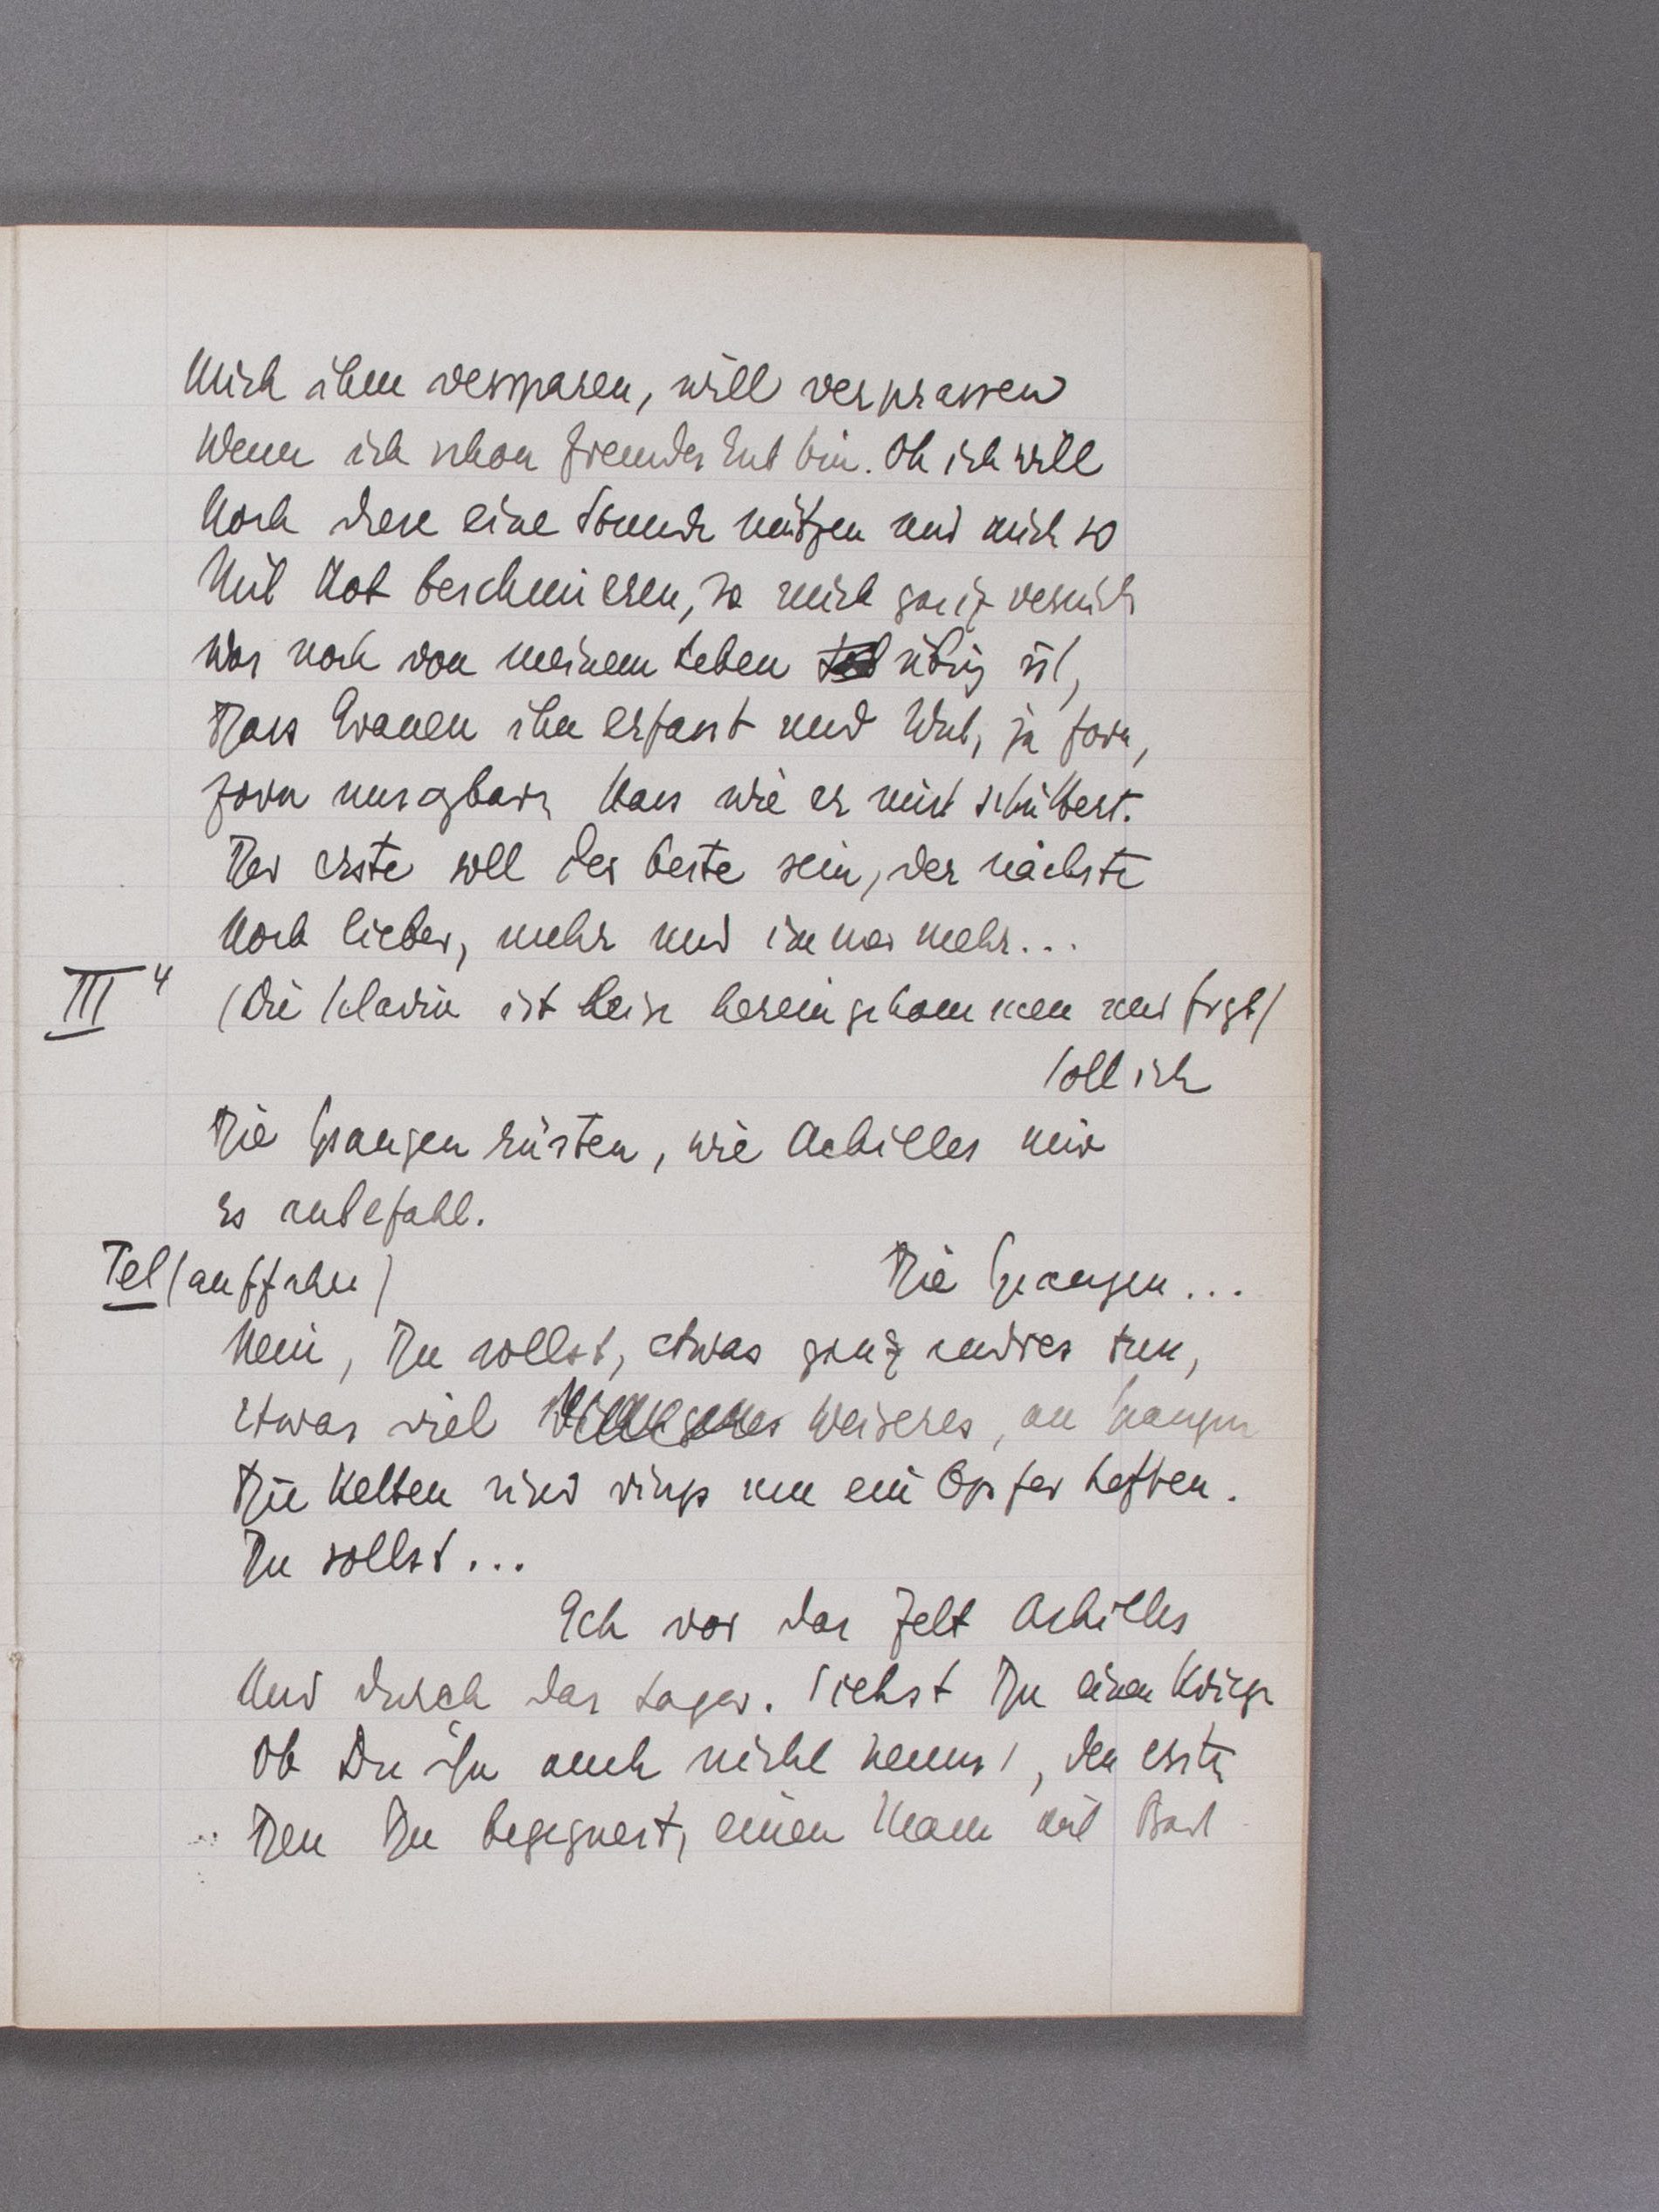 Mich ihm versparen, will verprassen
Wenn ich schon fremdes Gut bin. Oh ich will
Noch diese eine Stunde nützen und mich so
Mit Kot beschmieren, so mich ganz vernicht
Was noch von meinem Leben übrig ist,
Dass Grauen ihn erfasst und Wut, ja Zorn,
Zorn unsagbarer Hass wie er mich schüttert.
Der erste soll der beste sein, der nächste
Noch lieber, mehr und immer mehr...
III 4 (Die Sclavin ist leise hereingekommen und frgt)
Soll ich
Die Spangen rüsten, wie Achilles mir
Es anbefahl.
Tel (auffahrn) Die Spangen...
Nein, Du sollst, etwas ganz andres tun,
Etwas viel Weiseres, an Spangen
Die Ketten sind rings um ein Opfer haften.
Du sollst...
Geh vor das Zelt Achilles
Und durch das Lager. Siehst Du einen Krieger
Ob Du ihn auch nicht kennst, den ersten
Den Du begegnest, einen Mann mit Bart